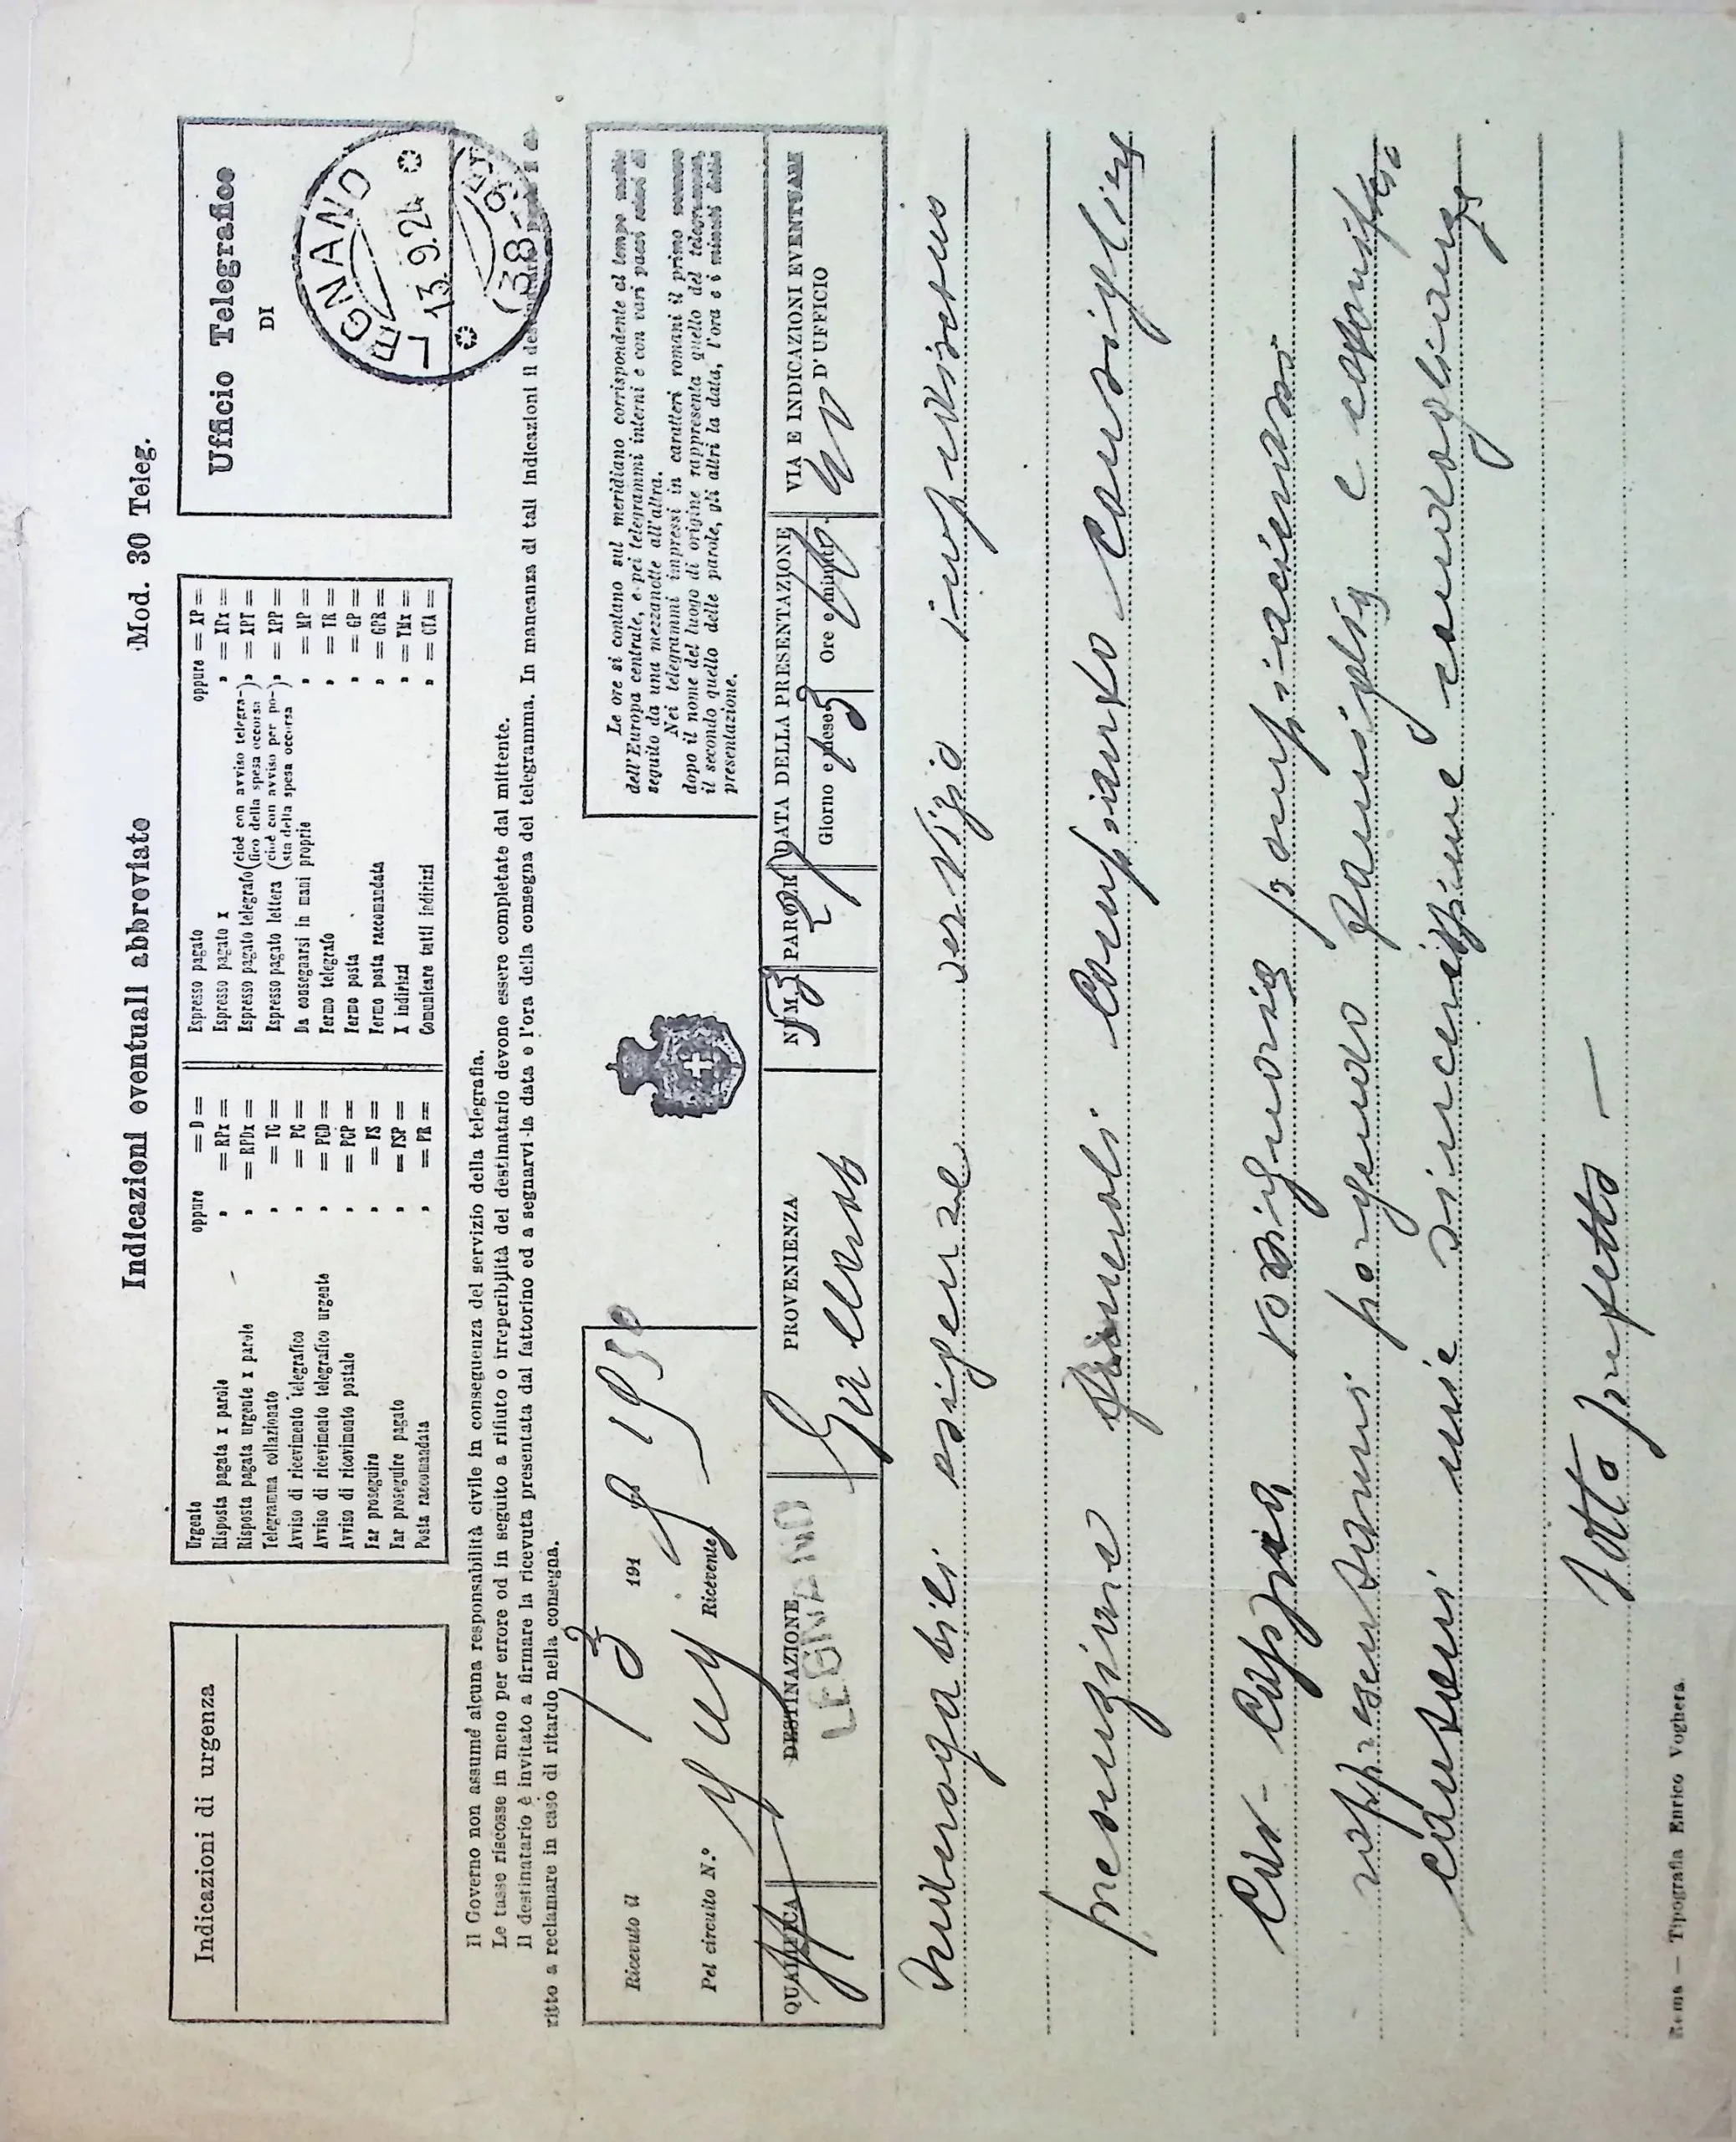 Indicazioni eventuali abbreviato
Mod. 30 Teleg.
Indicazioni di urgenza
Urgente oppure = D =
Risposta pagata x parole » = RPx =
Risposta pagata urgente x parole » = RPDx =
Telegramma collazionato » = TC =
Avviso di ricevimento telegrafico » = PC =
Avviso di ricevimento telegrafico urgente » = PCD =
Avviso di ricevimento postale » = PCP =
Far proseguire » = FS =
Far proseguire pagato » = FSP =
Posta raccomandata » = PR =
Espresso pagato oppure = XP =
Espresso pagato x » = XPx =
Espresso pagato telegrafo (cioè con avviso telegra-fico della spesa occorsa) » = XPT =
Espresso pagato lettera (cioè con avviso per po-sta della spesa occorsa) » = XPP =
Da consegnarsi in mani proprie » = MP =
Fermo telegrafo » = TR =
Fermo posta » = GP =
Fermo posta raccomandata » = GPR =
X indirizzi » = TMx =
Comunicare tutti indirizzi » = CTA =
Ufficio Telegrafico
DI
LEGNANO
13.9.24
(38-
Il Governo non assume alcuna responsabilità civile in conseguenza del servizio della telegrafia.
Le tasse riscosse in meno per errore od in seguito a rifiuto o irreperibilità del destinatario devono essere completate dal mittente.
Il destinatario è invitato a firmare la ricevuta presentata dal fattorino ed a segnarvi la data e l'ora della consegna del telegramma. In mancanza di tali indicazioni il
ritto a reclamare in caso di ritardo nella consegna.
Ricevuto il 13 191
Pel circuito N.º
Ricevente
Le ore si contano sul meridiano corrispondente al tempo medio
dell'Europa centrale, e pei telegrammi interni e con vari paesi esteri di
seguito da una mezzanotte all'altra.
Nei telegrammi impressi in caratteri romani il primo numero
dopo il nome del luogo di origine rappresenta quello del telegramma,
il secondo quello delle parole, gli altri la data, l'ora e i minuti della
presentazione.
QUALIFICA
DESTINAZIONE
PROVENIENZA
NUM.
PAROLE
DATA DELLA PRESENTAZIONE
Giorno e mese
Ore e minuti
VIA E INDICAZIONI EVENTUALI
D'UFFICIO
LEGNANO
Gallarate
13
Inderogabili esigenze servizio impediscono
presenziare funerali compianto consigliere
Cav. rappresentarmi porgendo famiglia e
cittadini mie sincerissime condoglianze
Sotto prefetto —
Roma — Tipografia Enrico Voghera